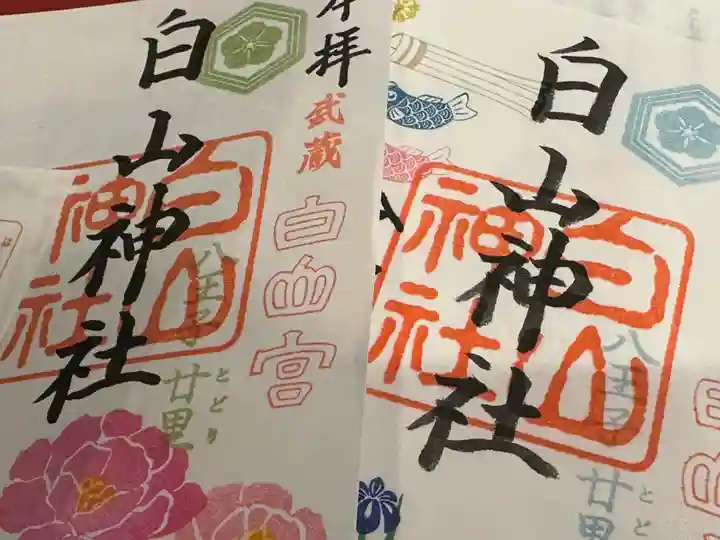 奉拝
武蔵
白山宮
白山神社
白山
神社
八王子 廿里
とどり
白山神社
白山
神社
八王子 廿里
とど
白山